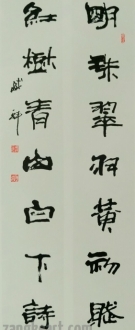 明珠翠羽黄初賦
紅樹青山白下詩